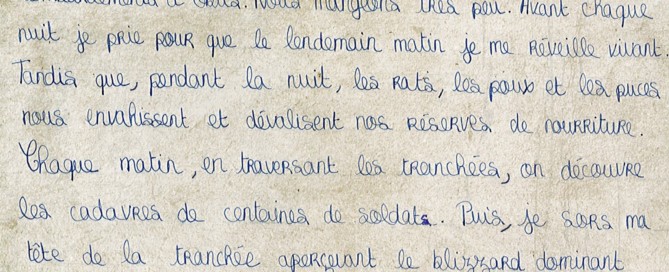 à vous. Nous mangeons très peu. Avant chaque
nuit je prie pour que le lendemain matin je me réveille vivant.
Tandis que, pendant la nuit, les rats, les poux et les puces
nous envahissent et dévalisent nos réserves de nourriture.
Chaque matin, en traversant les tranchées, on découvre
les cadavres de centaines de soldats. Puis, je sors ma
tête de la tranchée aperçevant le blizzard dominant